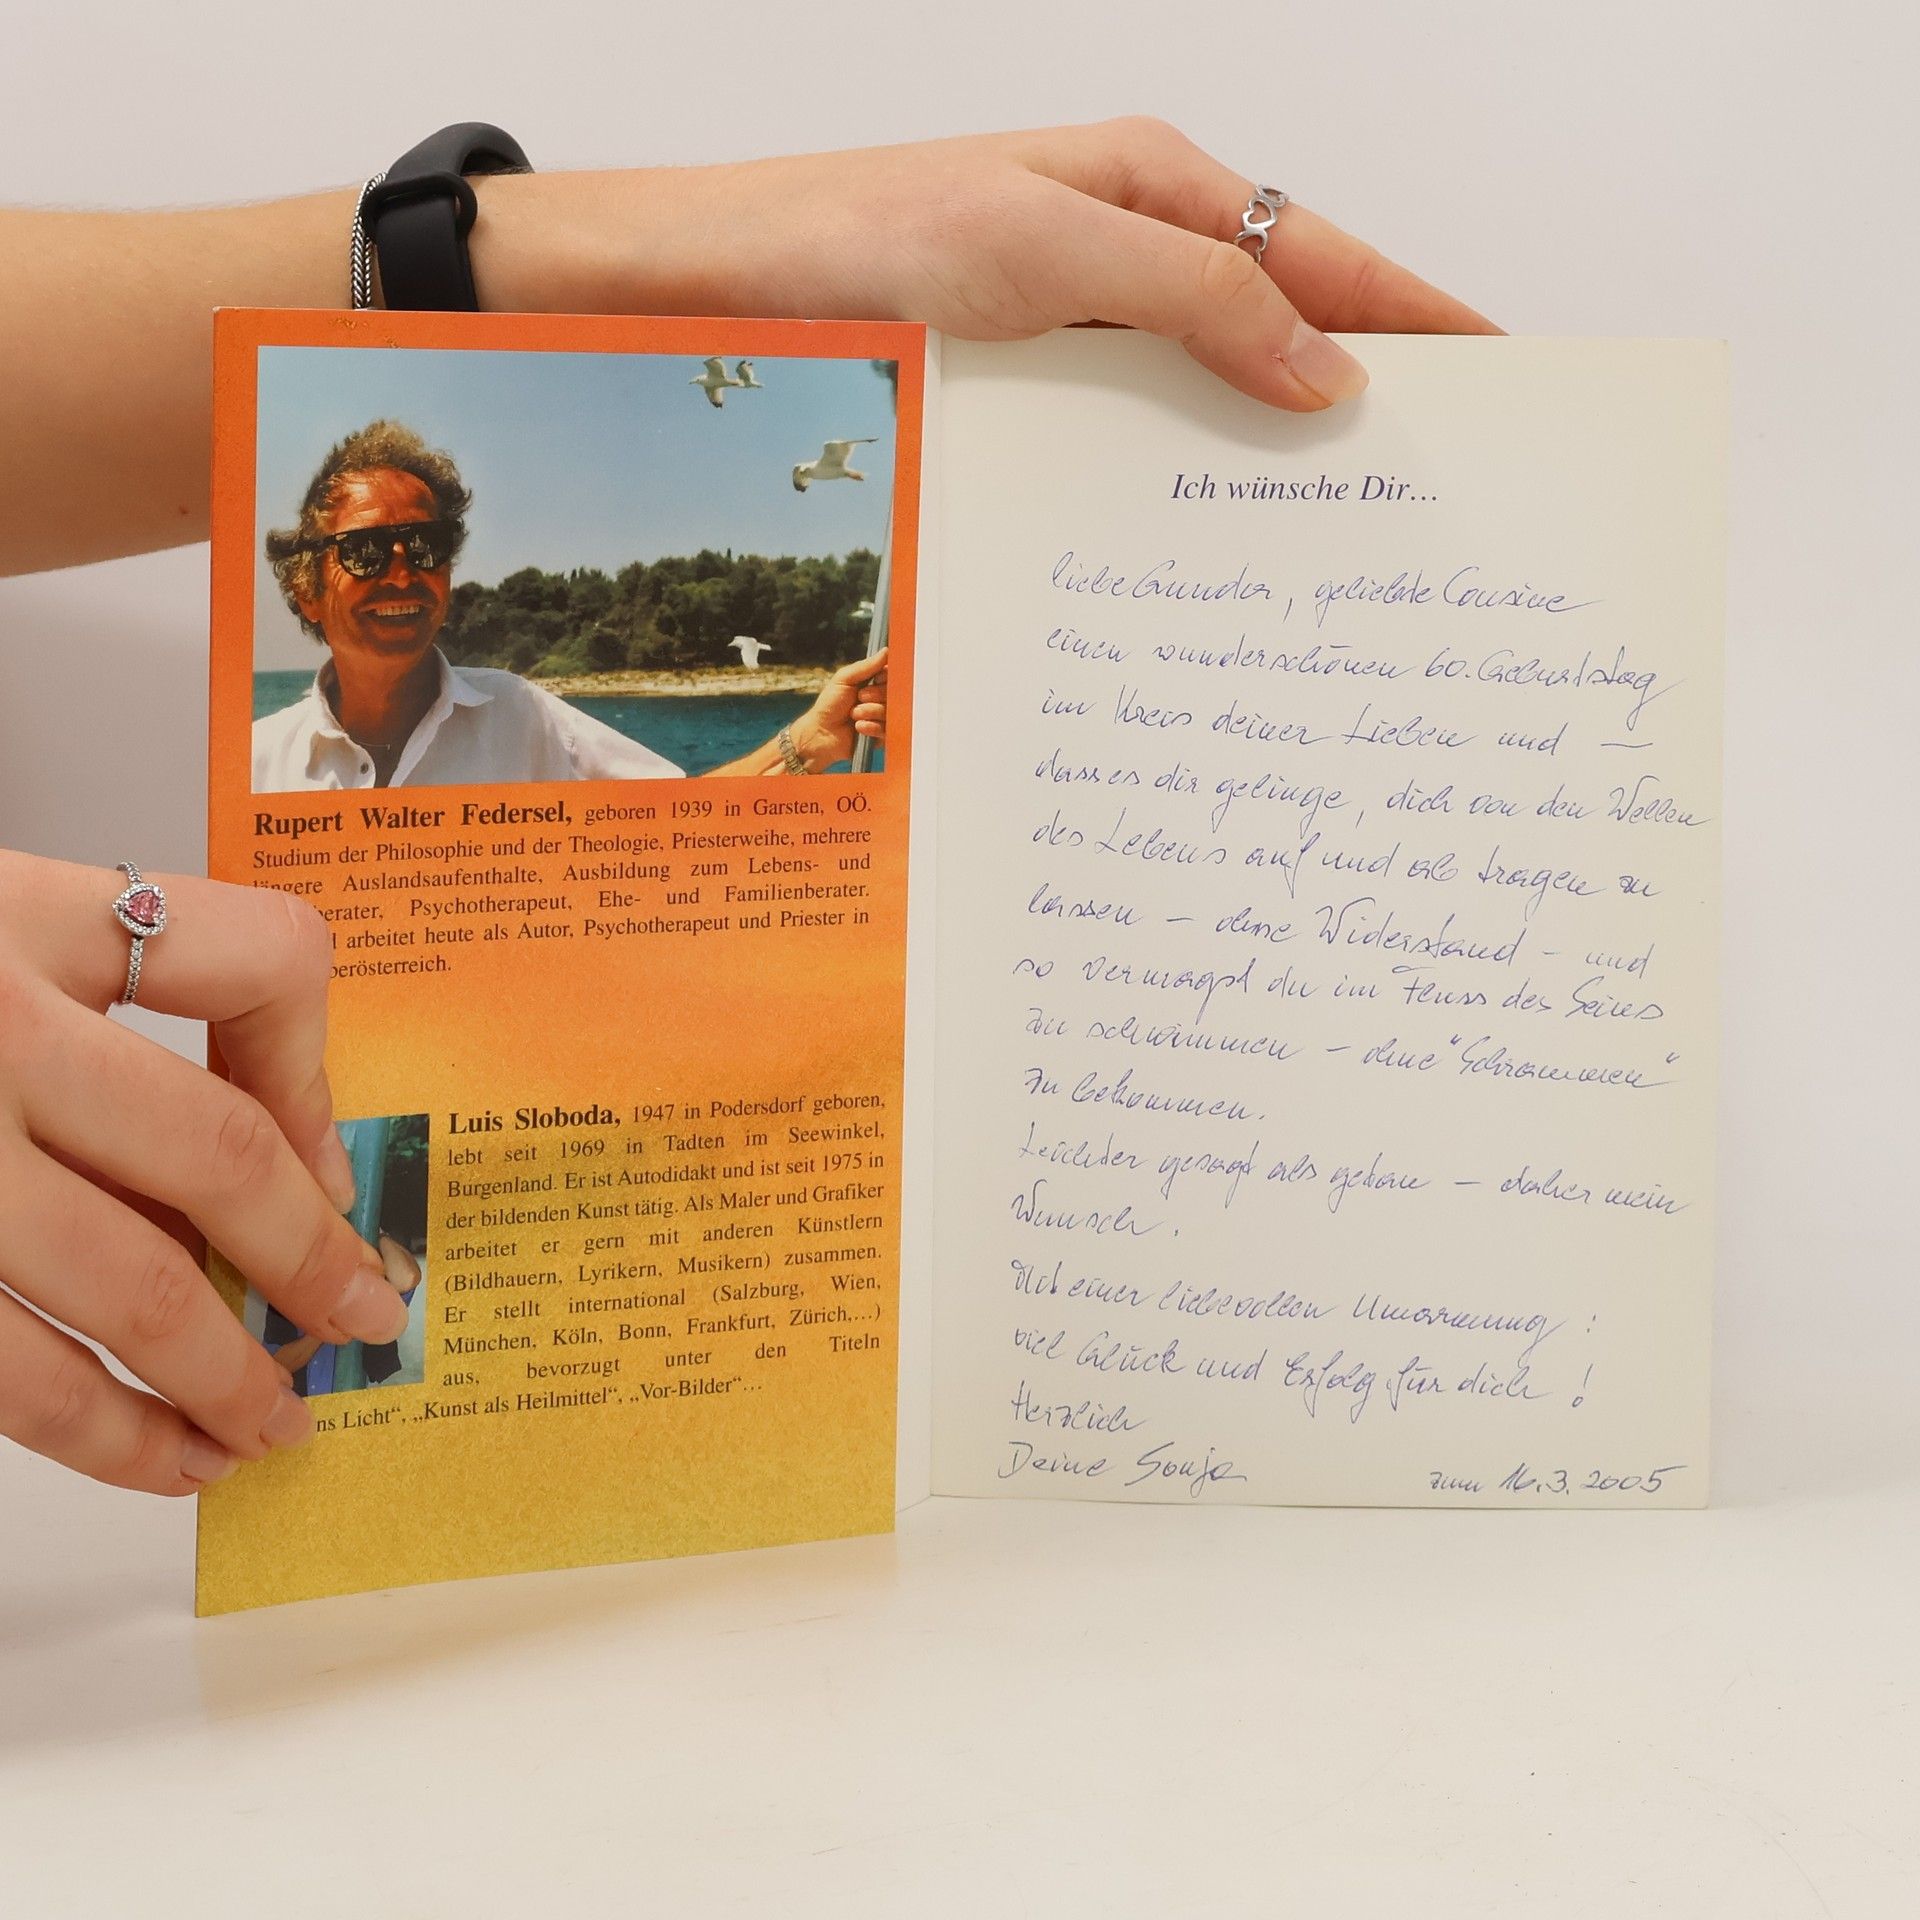 Rupert Walter Federsel, geboren 1939 in Garsten, OÖ.
Studium der Philosophie und der Theologie, Priesterweihe, mehrere
längere Auslandsaufenthalte, Ausbildung zum Lebens- und
berater, Psychotherapeut, Ehe- und Familienberater.
arbeitet heute als Autor, Psychotherapeut und Priester in
berösterreich.
Luis Sloboda, 1947 in Podersdorf geboren,
lebt seit 1969 in Tadten im Seewinkel,
Burgenland. Er ist Autodidakt und ist seit 1975 in
der bildenden Kunst tätig. Als Maler und Grafiker
arbeitet er gern mit anderen Künstlern
(Bildhauern, Lyrikern, Musikern) zusammen.
Er stellt international (Salzburg, Wien,
München, Köln, Bonn, Frankfurt, Zürich,...)
aus, bevorzugt unter den Titeln
ns Licht“, „Kunst als Heilmittel“, „Vor-Bilder“...
Ich wünsche Dir...
liebe , geliebte Cousine
einen wunderschönen 60. Geburtstag
im Kreis deiner Lieben und —
dass es dir gelinge, dich von den Wellen
des Lebens auf und ab tragen zu
lassen – ohne Widerstand – und
so vermagst du im Fluss des Seins
zu schwimmen – ohne "Schrammen"
zu bekommen.
Leichter gesagt als getan – daher mein
Wunsch.
Mit einer liebevollen Umarmung :
viel Glück und Erfolg für dich !
Herzlich
Deine Sonja
zum 16.3.2005